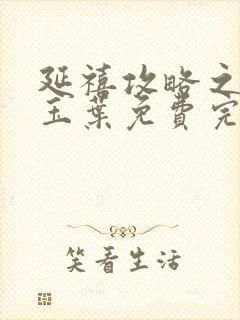 延禧攻略之
玉葉免費完
笑看生活